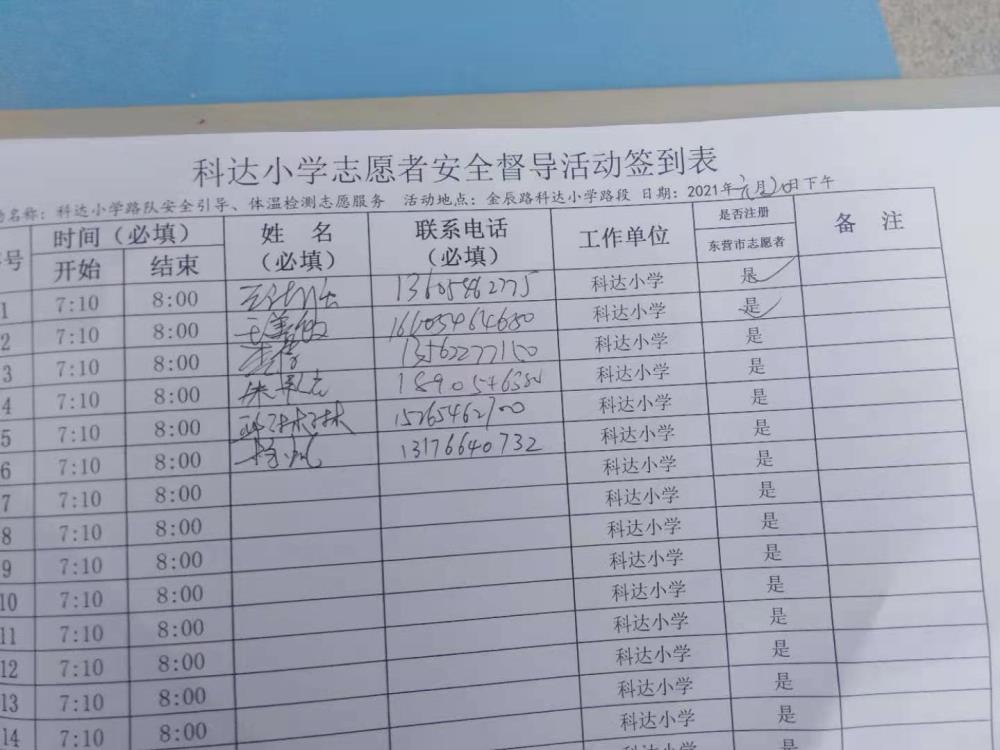 科达小学志愿者安全督导活动签到表
名称：科达小学路队安全引导、体温检测志愿服务 活动地点：金辰路科达小学路段 日期：2021年元月20日下午
号 时间（必填） 姓 名（必填） 联系电话（必填） 工作单位 是否注册东营市志愿者 备 注
开始 结束
1 7:10 8:00 13605462775 科达小学 是
2 7:10 8:00 科达小学 是
3 7:10 8:00 13562277150 科达小学 是
4 7:10 8:00 科达小学 是
5 7:10 8:00 15265462700 科达小学 是
6 7:10 8:00 13176640732 科达小学 是
7 7:10 8:00 科达小学 是
8 7:10 8:00 科达小学 是
9 7:10 8:00 科达小学 是
10 7:10 8:00 科达小学 是
11 7:10 8:00 科达小学 是
12 7:10 8:00 科达小学 是
13 7:10 8:00 科达小学 是
14 7:10 8:00 科达小学 是